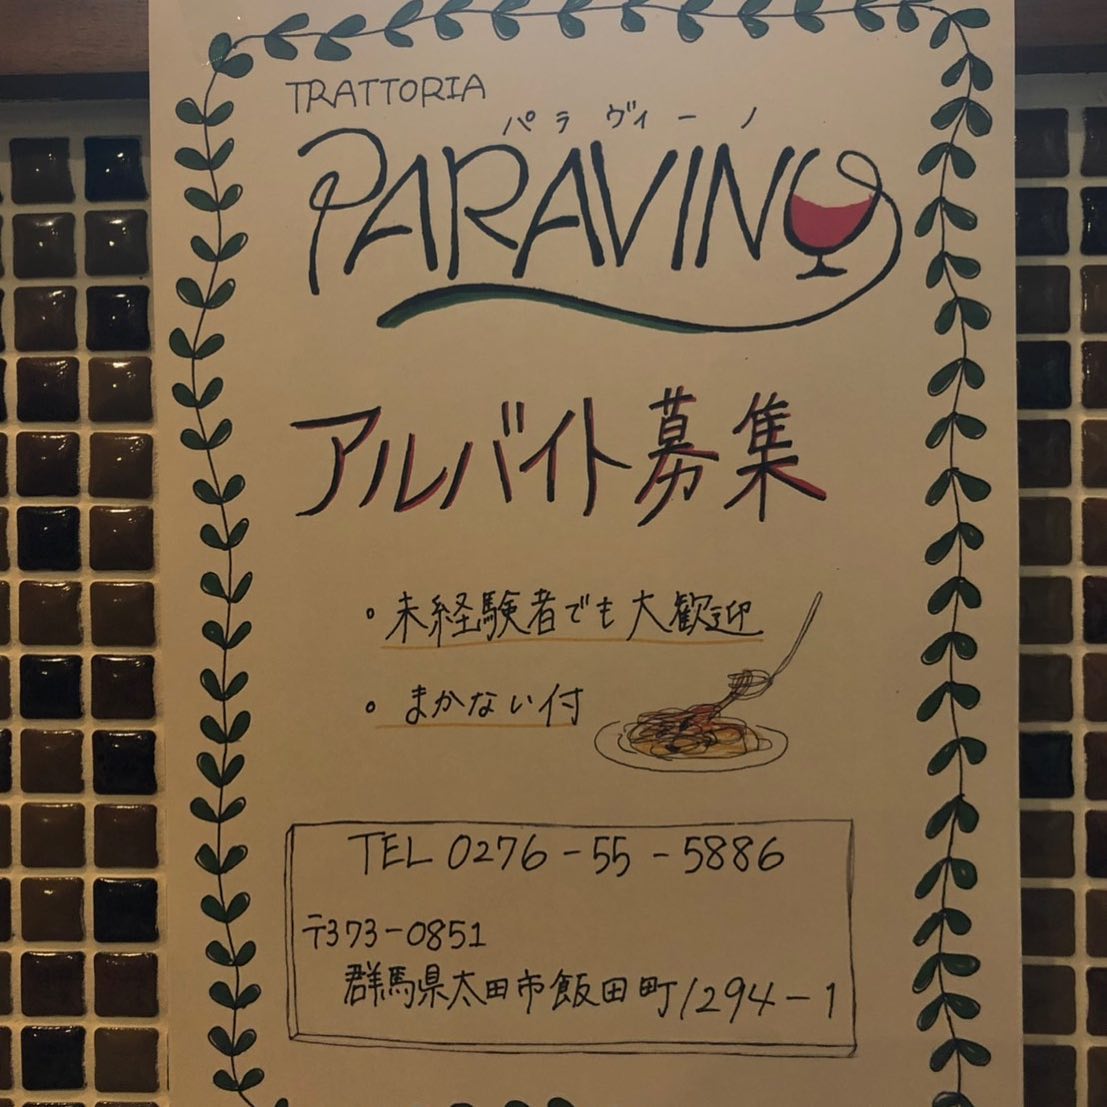 TRATTORIA
パラヴィーノ
PARAVINO
アルバイト募集
。未経験者でも大歓迎
。まかない付
TEL 0276-55-5886
〒373-0851
群馬県太田市飯田町1294-1